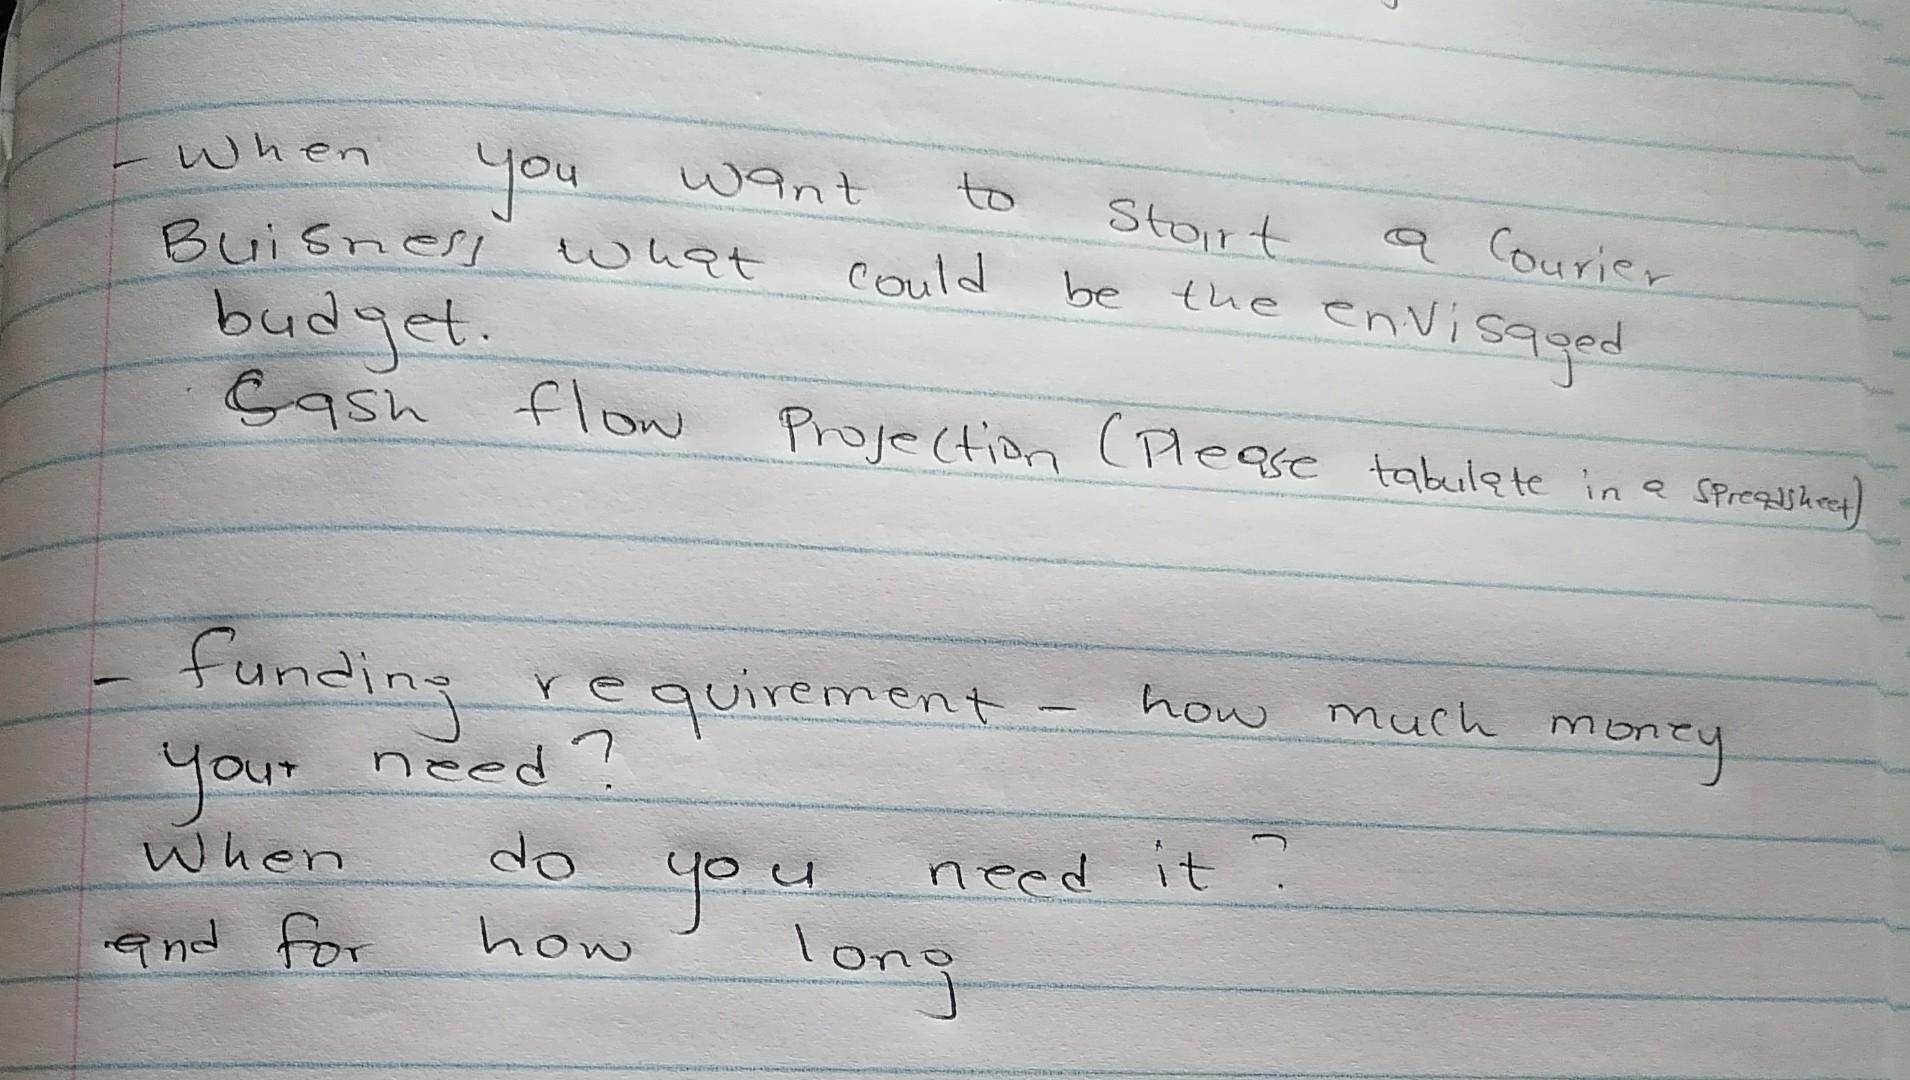 - When you want to start a Courier
Buisness what could be the envisaged
budget.
Cash flow Projection (Please tabulate in a spreadsheet)
- funding requirement - how much money
your need?
When do you need it?
and for how long